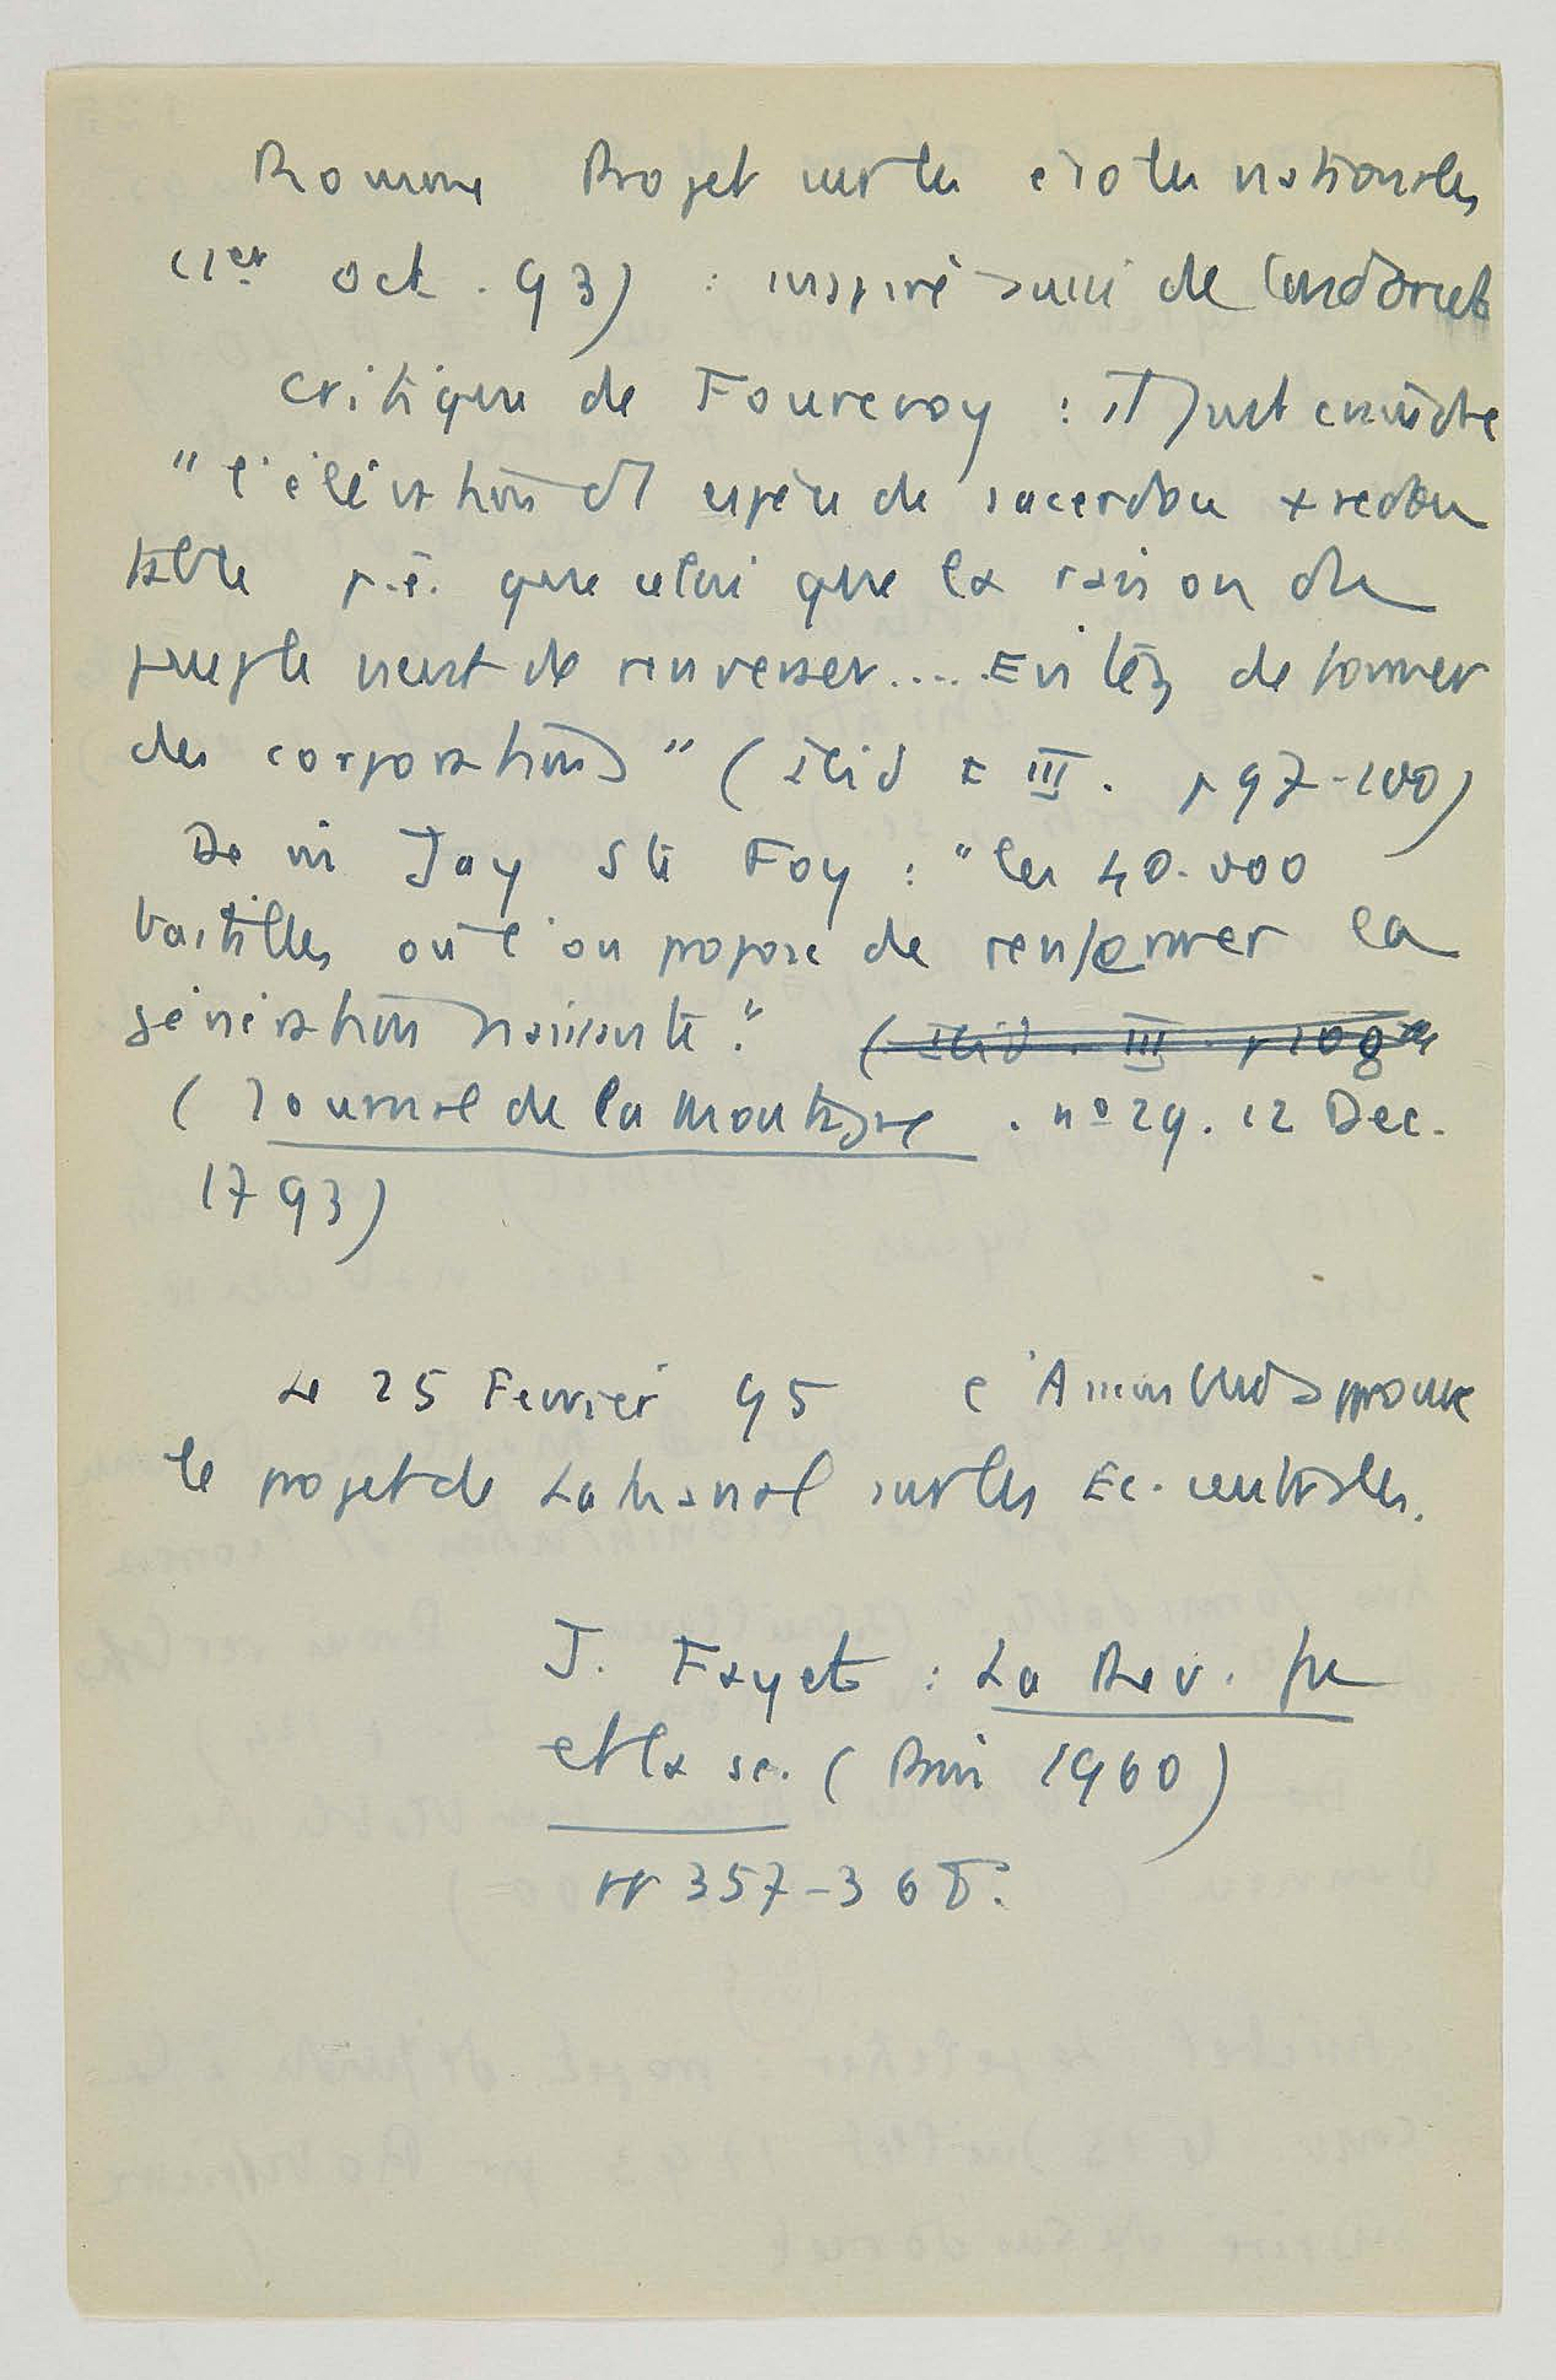 Romme Projet sur les écoles nationales
(1er oct. 93) : inspiré aussi de Condorcet
Critique de Fourcroy : il faut craindre
"l'élévation d'1 espèce de sacerdoce + redou
table p.ê. que celui que la raison du
peuple vient de renverser.... Evitez de former
des corporations" (ibid t III. p 97-100)
De m Jay Ste Foy : "les 40.000
bastilles où l'on propose de renfermer la
génération naissante." (ibid. III p 108
(Journal de la Montagne . nº 29. 12 Dec.
1793)
Le 25 Fevrier 95 l'Assemblée approuve
le projet de Lakanal sur les Ec. centrales.
J. Fayet : La Rev. fse
et la sc. (Paris 1960)
pp 357-368.